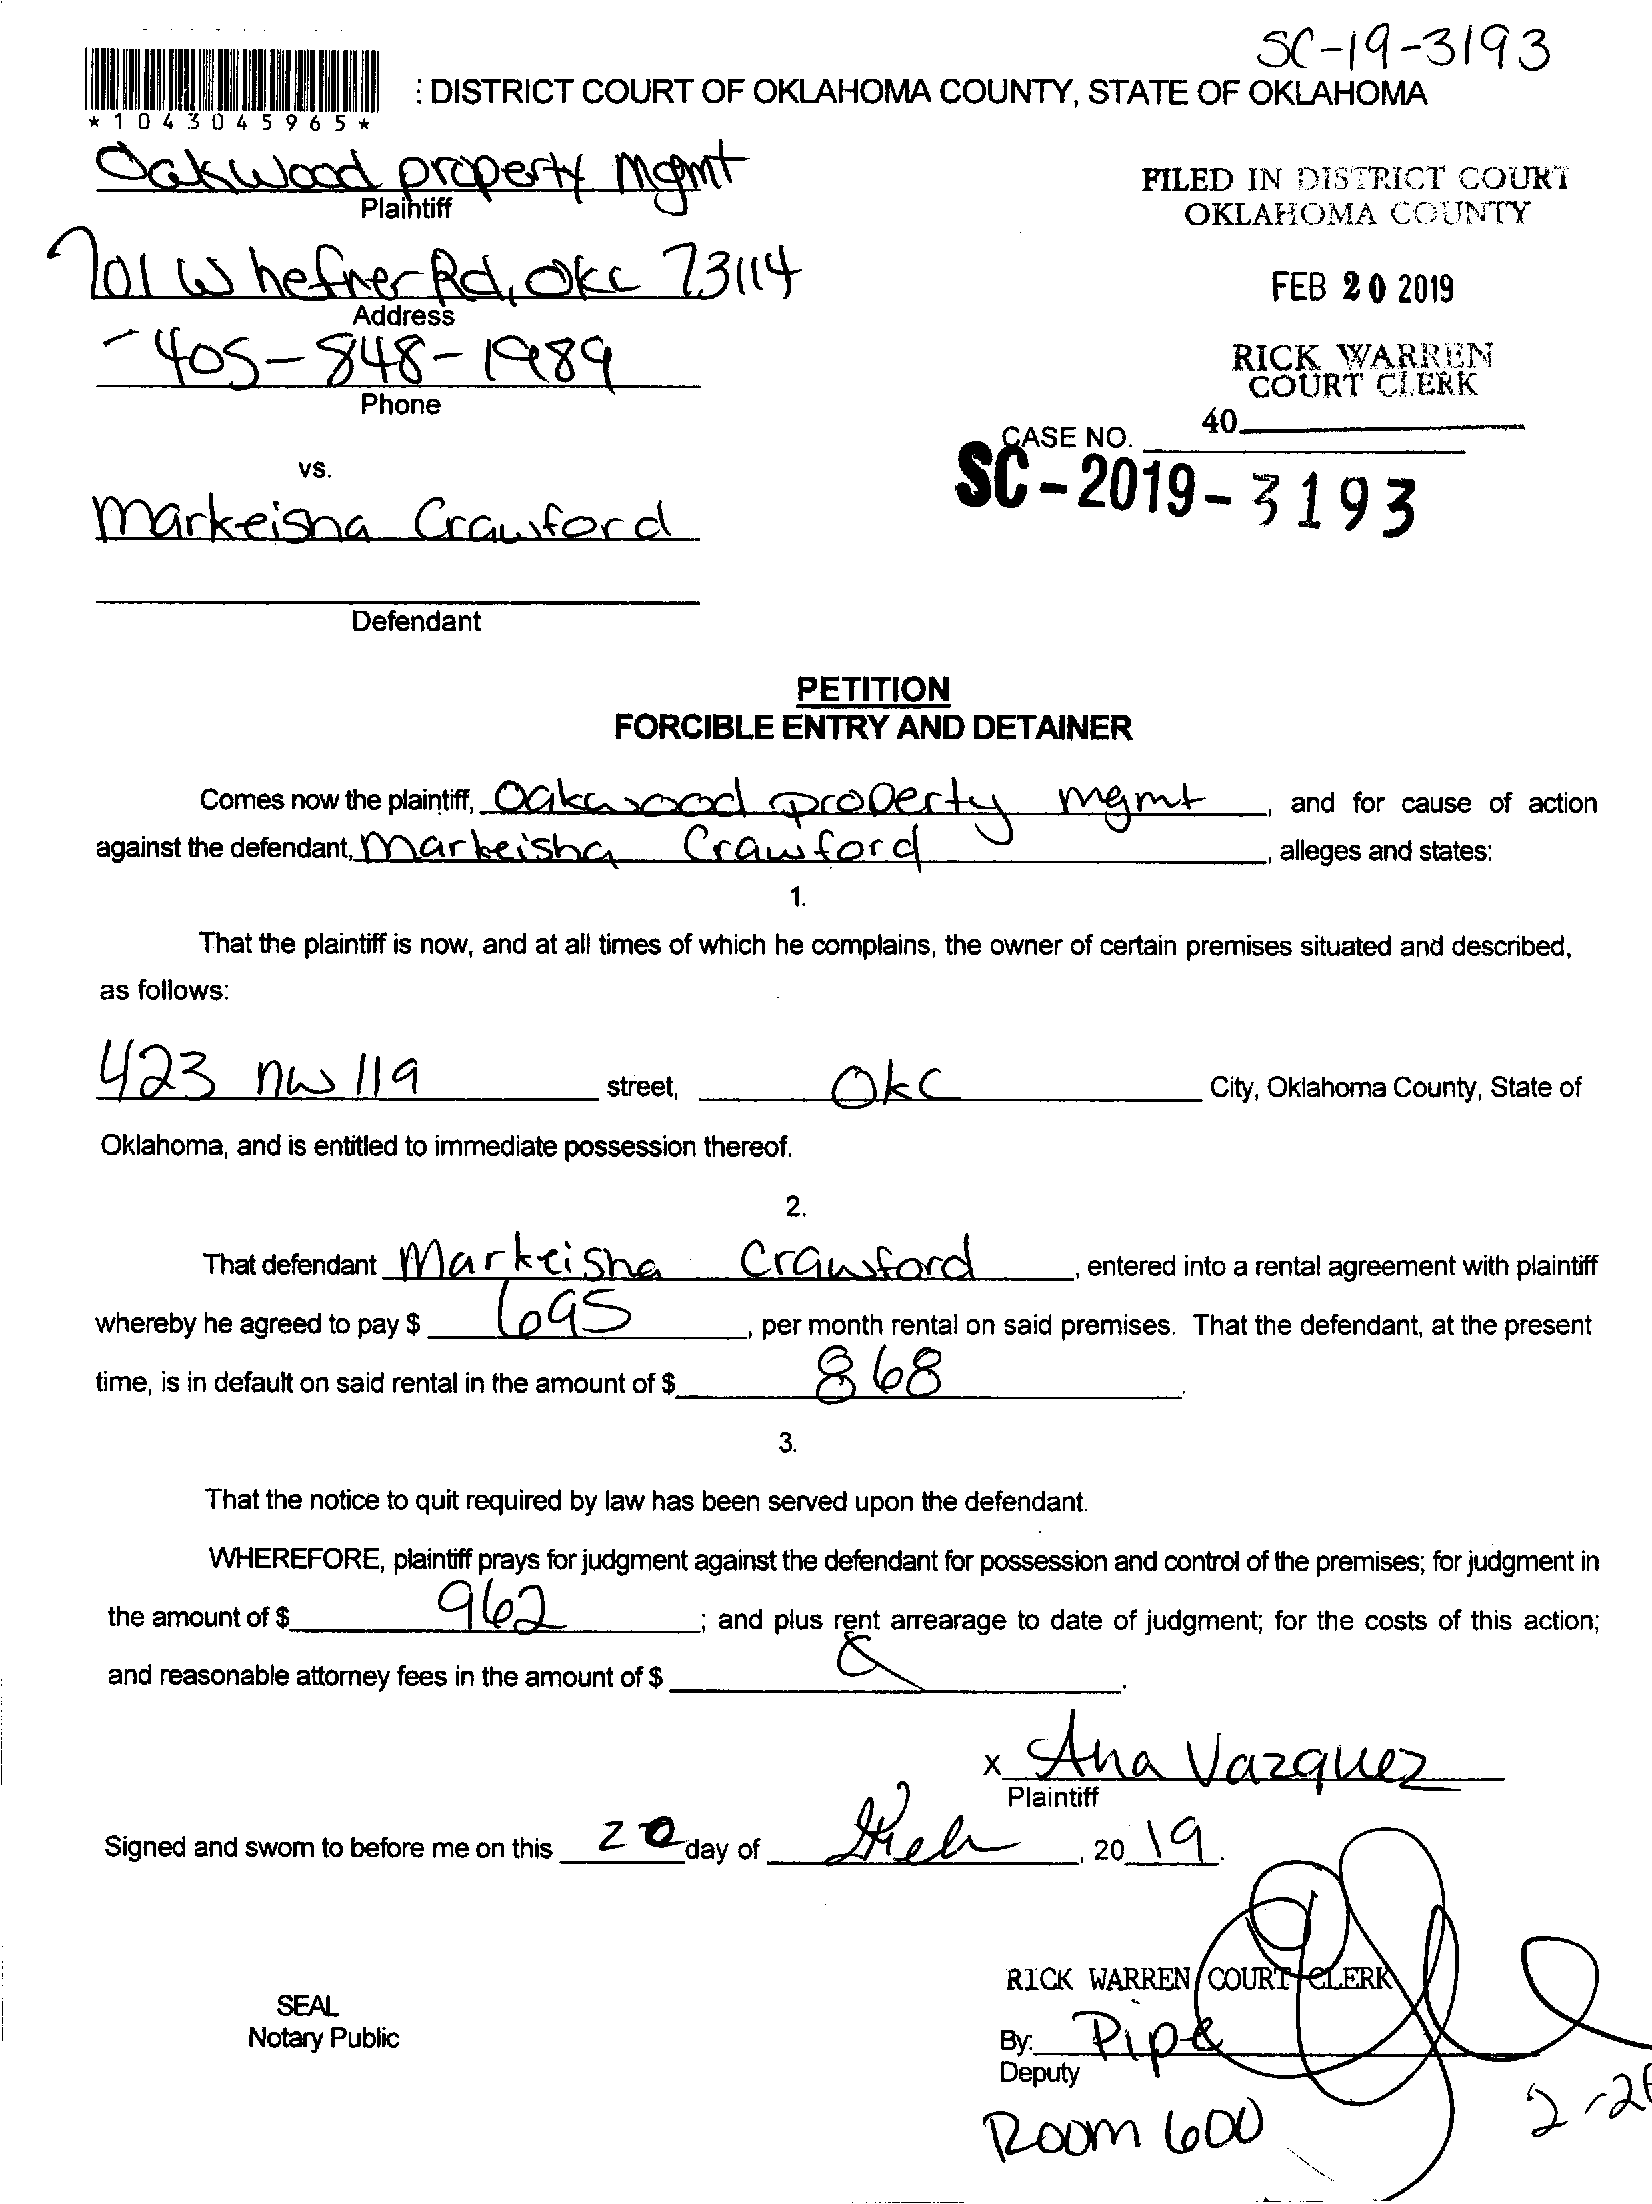 SC-19-3193
: DISTRICT COURT OF OKLAHOMA COUNTY, STATE OF OKLAHOMA
*1043045965*
Oakwood property Mgmt
Plaintiff
FILED IN DISTRICT COURT
OKLAHOMA COUNTY
701 W hefner Rd, Okc 73114
Address
FEB 20 2019
- 405-848-1989
Phone
RICK WARREN
COURT CLERK
40
CASE NO.
SC-2019-3193
vs.
Markeisha Crawford
Defendant
PETITION
FORCIBLE ENTRY AND DETAINER
Comes now the plaintiff, Oakwood property mgmt, and for cause of action
against the defendant, Markeisha Crawford, alleges and states:
1.
That the plaintiff is now, and at all times of which he complains, the owner of certain premises situated and described,
as follows:
423 nw 119 street, OKC City, Oklahoma County, State of
Oklahoma, and is entitled to immediate possession thereof.
2.
That defendant Markeisha Crawford, entered into a rental agreement with plaintiff
whereby he agreed to pay $ 695, per month rental on said premises. That the defendant, at the present
time, is in default on said rental in the amount of $ 868.
3.
That the notice to quit required by law has been served upon the defendant.
WHEREFORE, plaintiff prays for judgment against the defendant for possession and control of the premises; for judgment in
the amount of $ 962; and plus rent arrearage to date of judgment; for the costs of this action;
and reasonable attorney fees in the amount of $
x Ana Vazquez
Plaintiff
Signed and sworn to before me on this 20 day of Feb, 2019.
RICK WARREN COURT CLERK
SEAL
Notary Public
By:
Deputy
Room 600